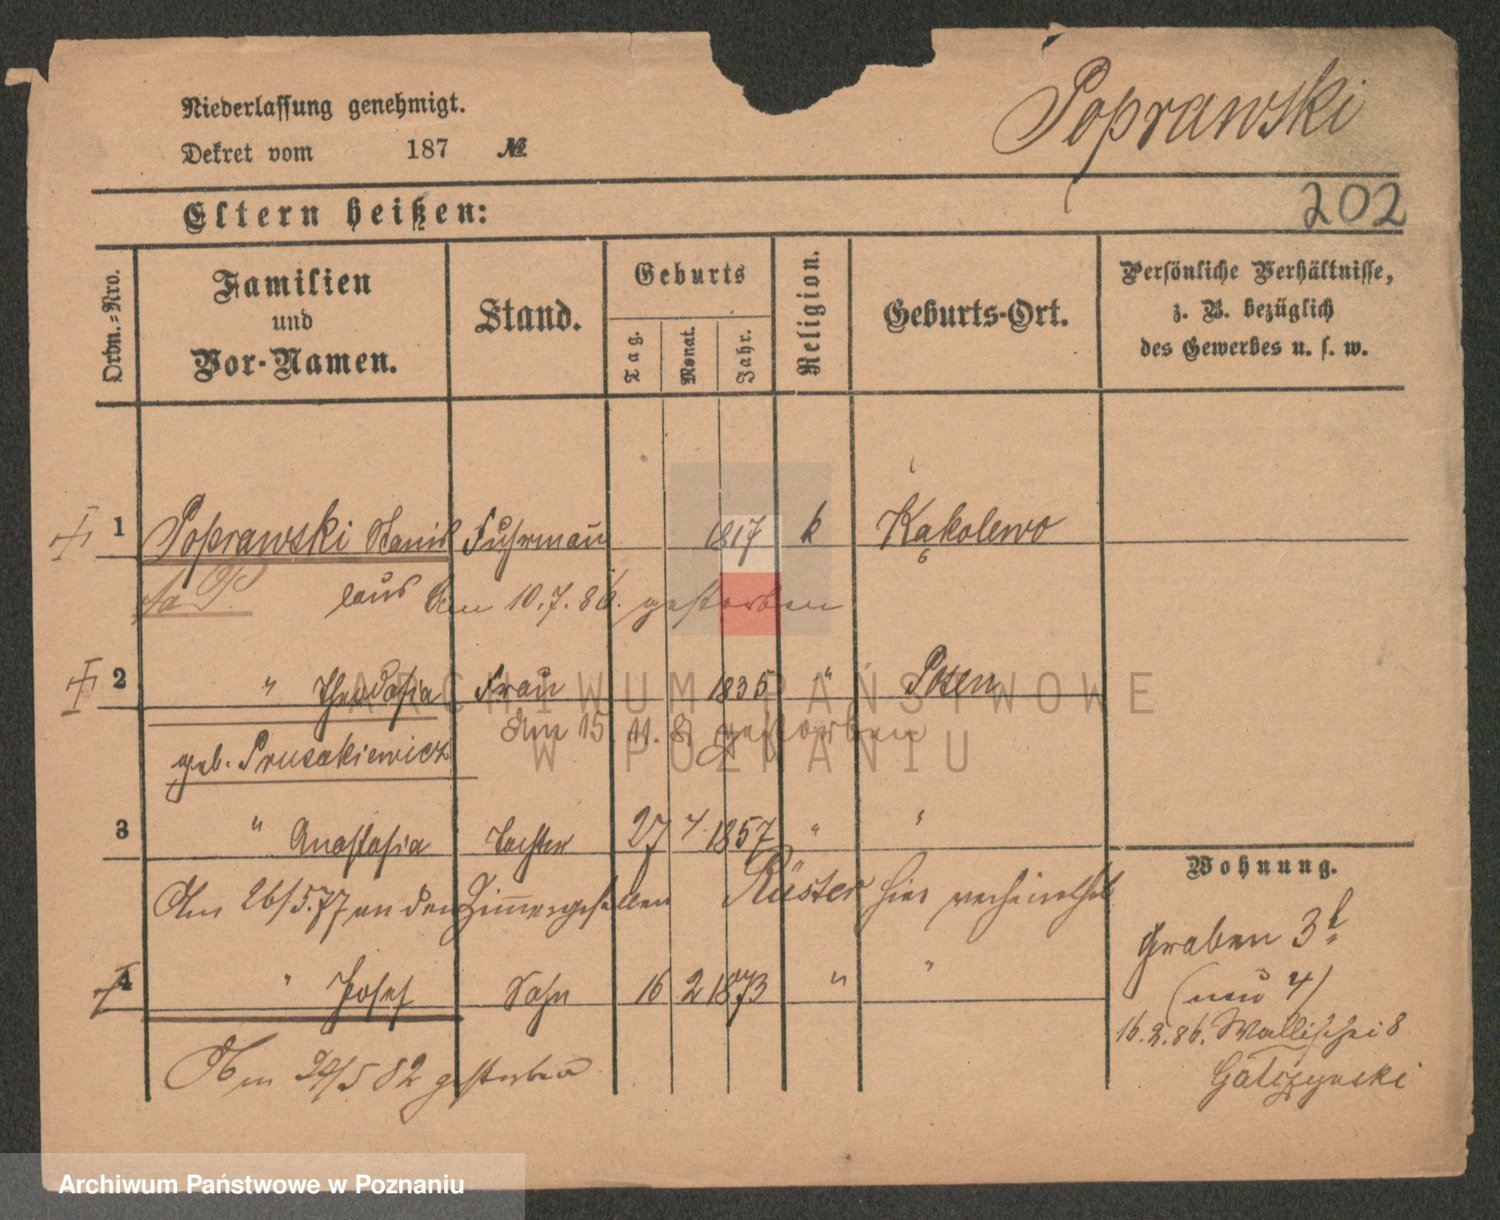 Niederlassung genehmigt.
Dekret vom 187 №
Poprawski
202
Eltern heißen:
Ordn.-Nro.
Familien
und
Vor-Namen.
Stand.
Geburts
Tag.
Monat.
Jahr.
Religion.
Geburts-Ort.
Persönliche Verhältnisse,
z. B. bezüglich
des Gewerbes u. s. w.
1 Poprawski Stanis Fuhrmann 1817 k Kąkolewo
laus Am 10.7.86. gestorben
2 " Theodosia Frau 1835 " Posen
Am 15 11. gestorben
geb. Prusakiewicz
3 " Anastasia Tochter 27 4. 1857 " "
Am 26/5.77 an den Zimmergesellen Küster hier verheirathet
4 " Josef Sohn 16 2 1873 " "
Am 24/5 82 gestorben
Wohnung.
Graben 3
(neu 4)
16.2.86. Wallischei 8
Gałczynski
ARCHIWUM PAŃSTWOWE
W POZNANIU
Archiwum Państwowe w Poznaniu